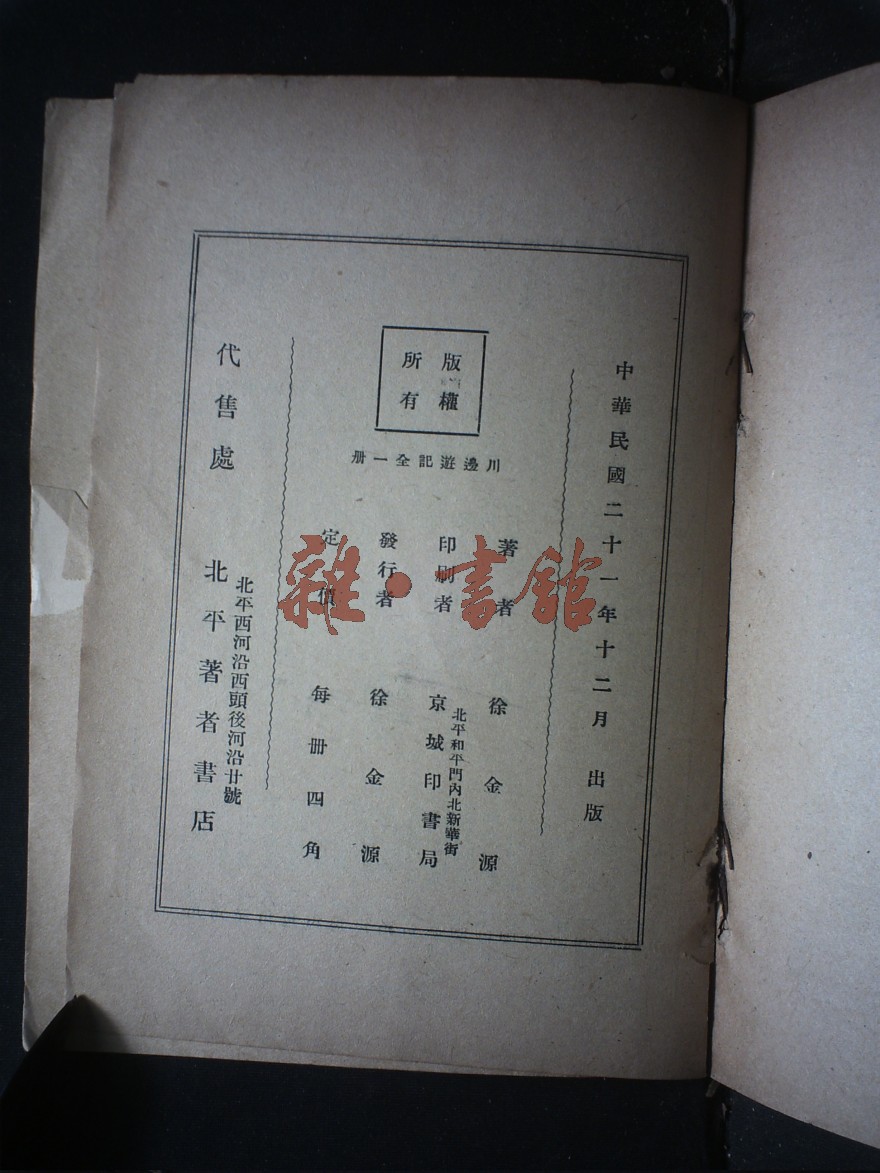 中華民國二十一年十二月 出版
版權所有
川邊遊記全一册
著者 徐金源
印刷者 北平和平門內北新華街 京城印書局
發行者 徐金源
定價 每册四角
代售處 北平西河沿西頭後河沿廿號 北平著者書店
雜·書館